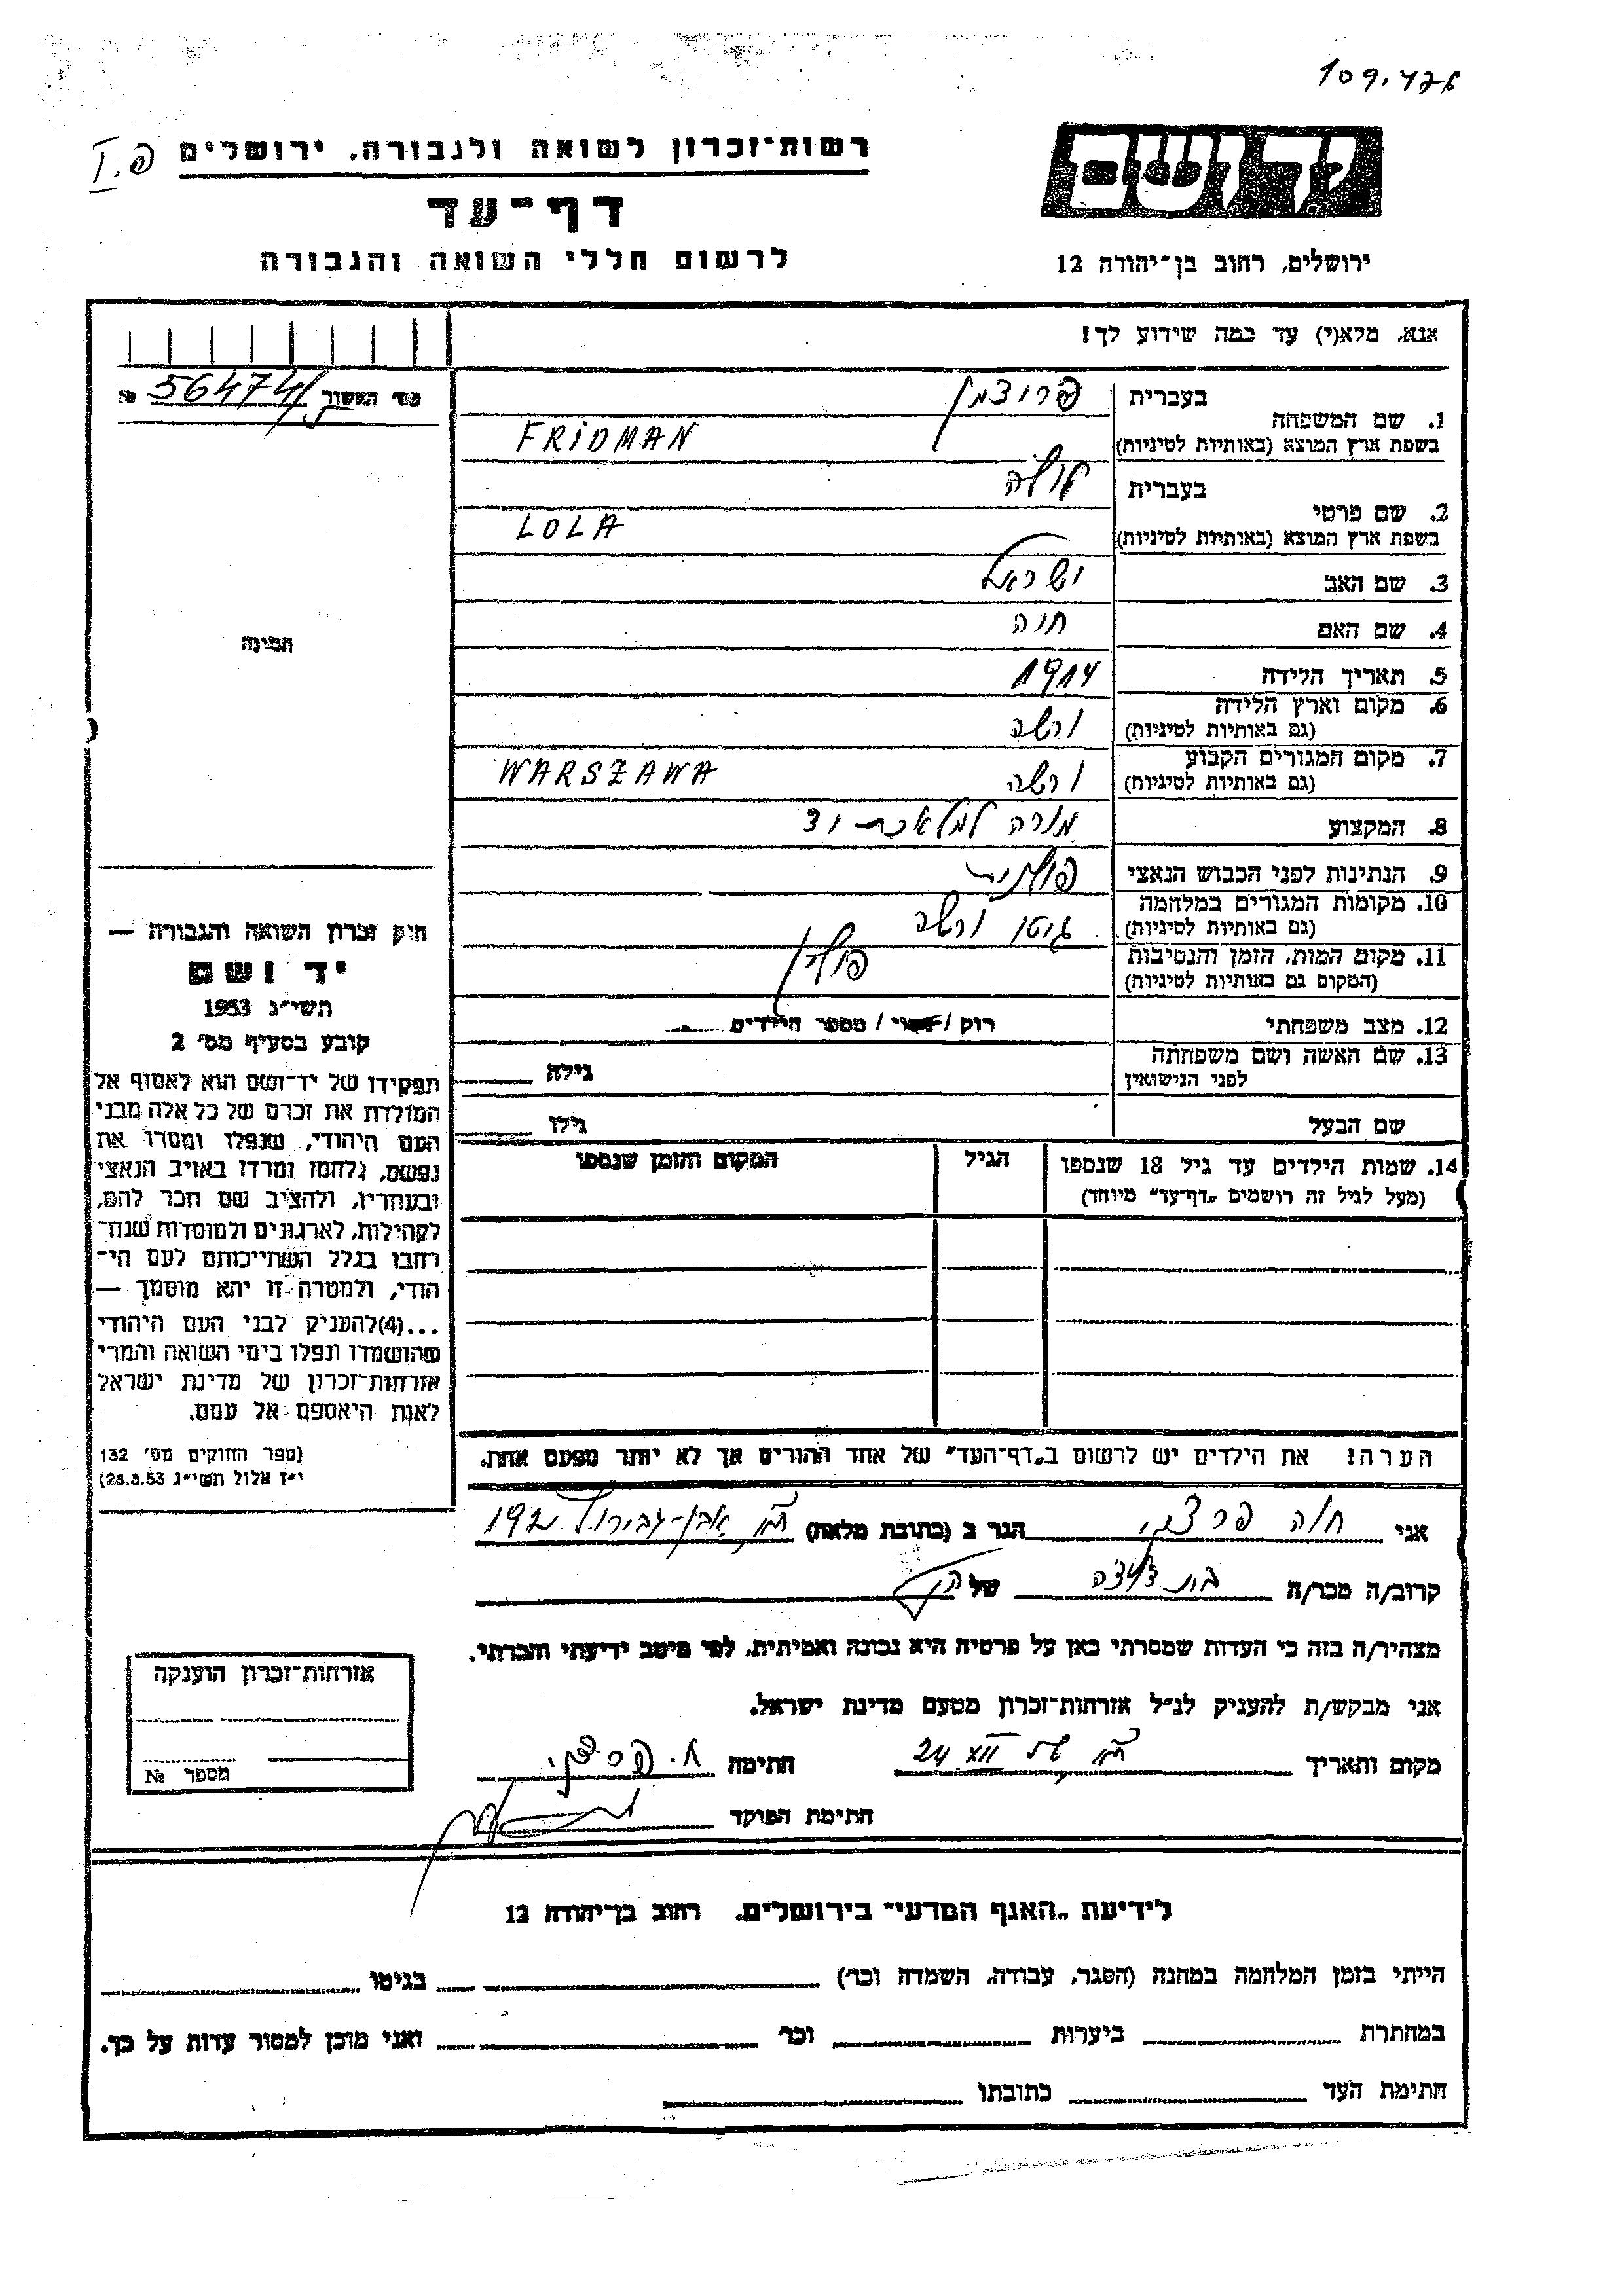 רשות־זכרון לשואה ולגבורה, ירושלים
דף־עד
לרשום חללי השואה והגבורה
ירושלים, רחוב בן־יהודה 12
אנא, מלא(י) עד כמה שידוע לך!
מס׳ האשור № 56474/
1. שם המשפחה
בעברית
פרידמן
בשפת ארץ המוצא (באותיות לטיניות)
FRIDMAN
2. שם פרטי
בעברית
לולה
בשפת ארץ המוצא (באותיות לטיניות)
LOLA
3. שם האב ישראל
4. שם האם חנה
5. תאריך הלידה 1914
6. מקום וארץ הלידה
(גם באותיות לטיניות) ורשה
7. מקום המגורים הקבוע
(גם באותיות לטיניות) ורשה WARSZAWA
8. המקצוע מורה למלאכת יד
9. הנתינות לפני הכבוש הנאצי פולנית
10. מקומות המגורים במלחמה
(גם באותיות לטיניות) גיטו ורשה
11. מקום המות, הזמן והנסיבות
(המקום גם באותיות לטיניות) פולין
12. מצב משפחתי רוק / נשוי / מספר הילדים
13. שם האשה ושם משפחתה
לפני הנישואין
גילה
שם הבעל
גילו
14. שמות הילדים עד גיל 18 שנספו
(מעל לגיל זה רושמים „דף־עד״ מיוחד)
הגיל
המקום והזמן שנספו
הערה! את הילדים יש לרשום ב„דף־העד״ של אחד ההורים אך לא יותר מפעם אחת.
תמונה
חוק זכרון השואה והגבורה —
יד ושם
תשי״ג 1953
קובע בסעיף מס׳ 2
תפקידו של יד־ושם הוא לאסוף אל
המולדת את זכרם של כל אלה מבני
העם היהודי, שנפלו ומסרו את
נפשם, נלחמו ומרדו באויב הנאצי
ובעוזריו, ולהציב שם וזכר להם,
לקהילות, לארגונים ולמוסדות שנח־
רבו בגלל השתייכותם לעם הי־
הודי, ולמטרה זו יהא מוסמך —
...(4)להעניק לבני העם היהודי
שהושמדו ונפלו בימי השואה והמרי
אזרחות־זכרון של מדינת ישראל
לאות היאספם אל עמם.
(ספר החוקים מס׳ 132
י״ז אלול תשי״ג 28.8.53)
אני חוה הגר ב (כתובת מלאה) ת״א, אבן־גבירול 192
קרוב/ה מכר/ה בת דודה של הנ״ל
מצהיר/ה בזה כי העדות שמסרתי כאן על פרטיה היא נכונה ואמיתית, לפי מיטב ידיעתי והכרתי.
אני מבקש/ת להעניק לנ״ל אזרחות־זכרון מטעם מדינת ישראל.
מקום ותאריך ת״א, 24 XII חתימה
חתימת הפוקד
אזרחות־זכרון הוענקה
מספר №
לידיעת „האגף המדעי״ בירושלים, רחוב בן־יהודה 12
הייתי בזמן המלחמה במחנה (הסגר, עבודה, השמדה וכו׳) בגיטו
במחתרת ביערות וכו׳ ואני מוכן למסור עדות על כך.
חתימת העד כתובתו